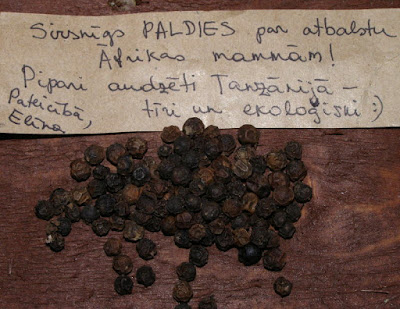 Sirsnīgs PALDIES par atbalstu
Āfrikas mammām!
Pipari audzēti Tanzānijā –
tīri un ekoloģiski :)
Pateicībā,
Elīna